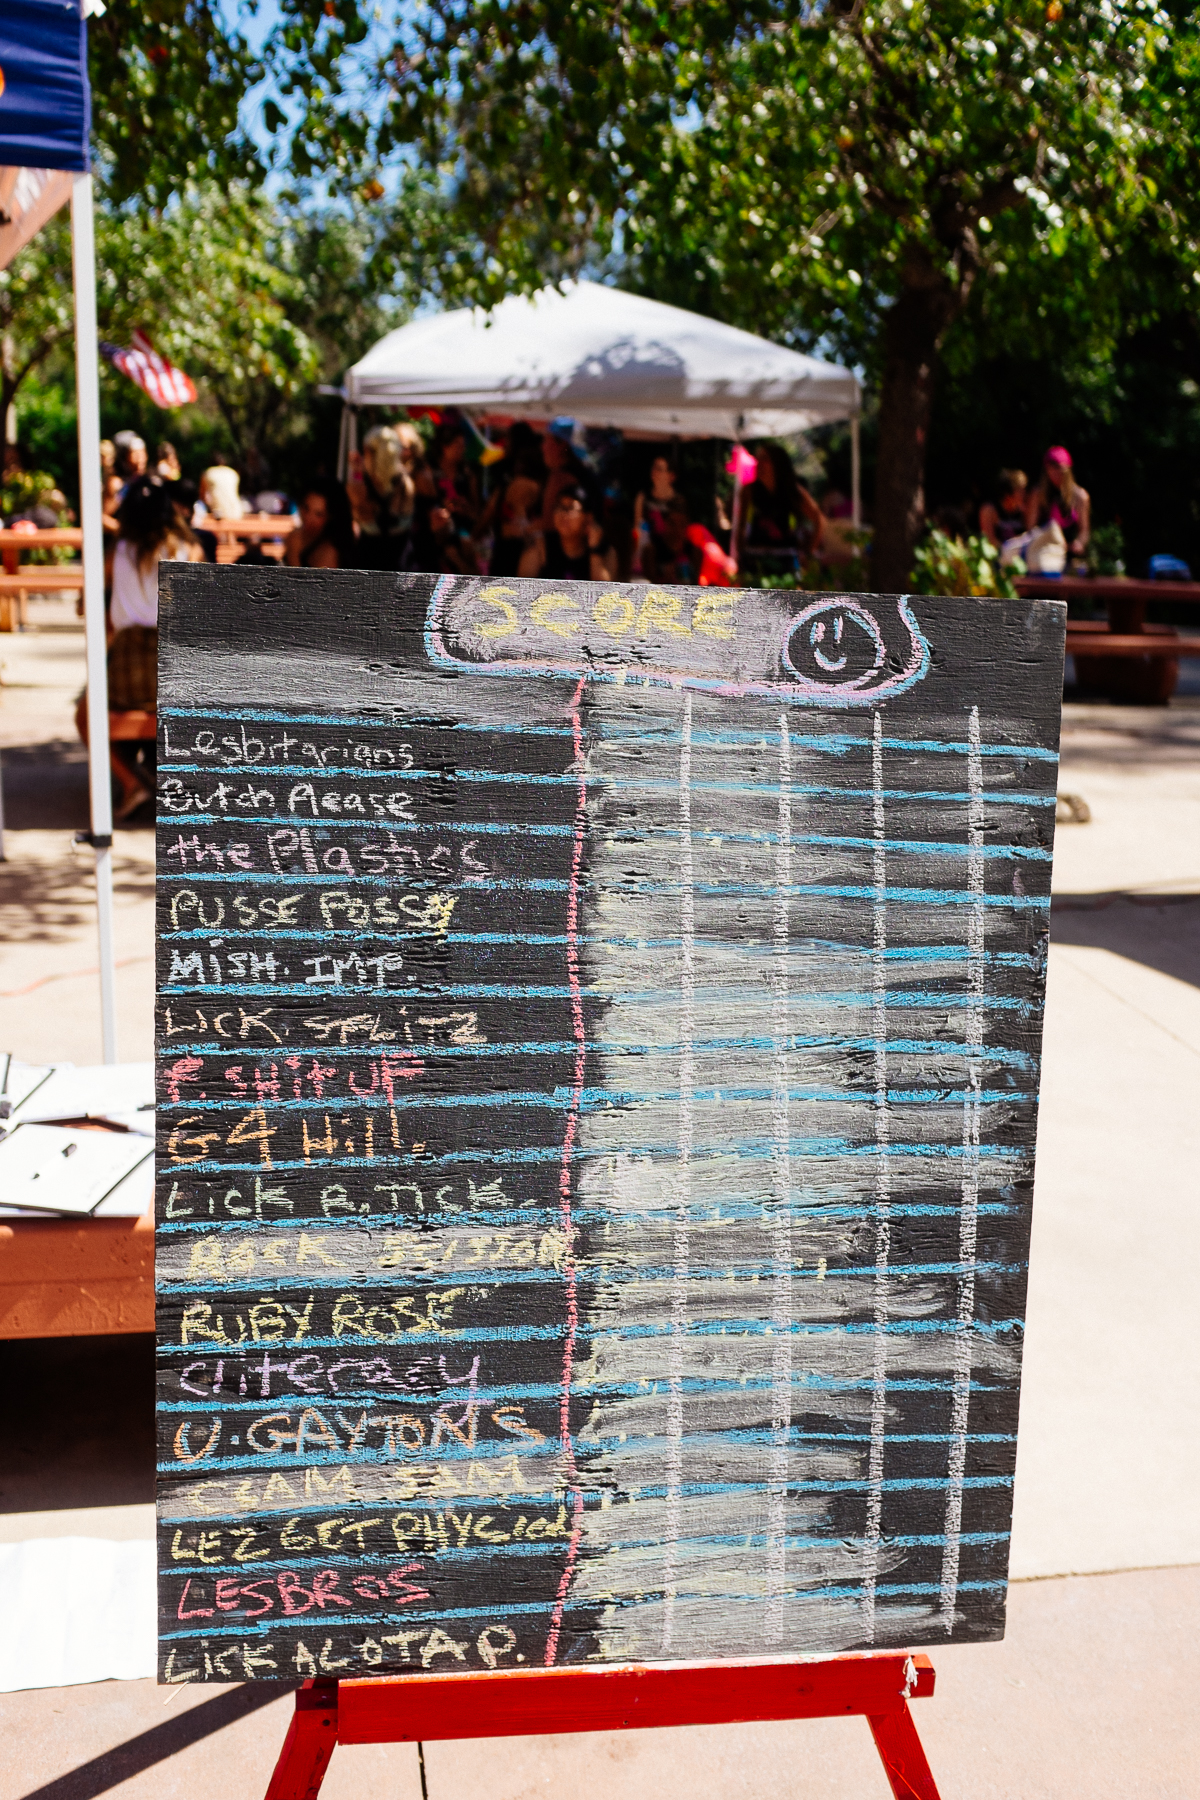 SCORE
Lesbitarians
Butch Please
the Plastics
PUSSE POSSY
MISH. IMP.
LICK. SPLITZ
P. SHIT UP
G4 Hill.
LICK R. TICK.
RUBY ROSE
Cliteracy
U. GAYTONS
CLAM JAM
LEZ GET PHYCical
LESBROS
LICK ALOTA P.